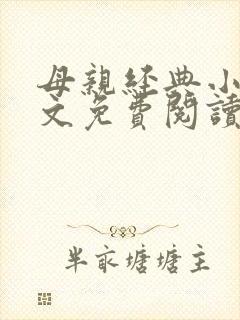 母親經典小
文免費閱讀
半畝塘塘主